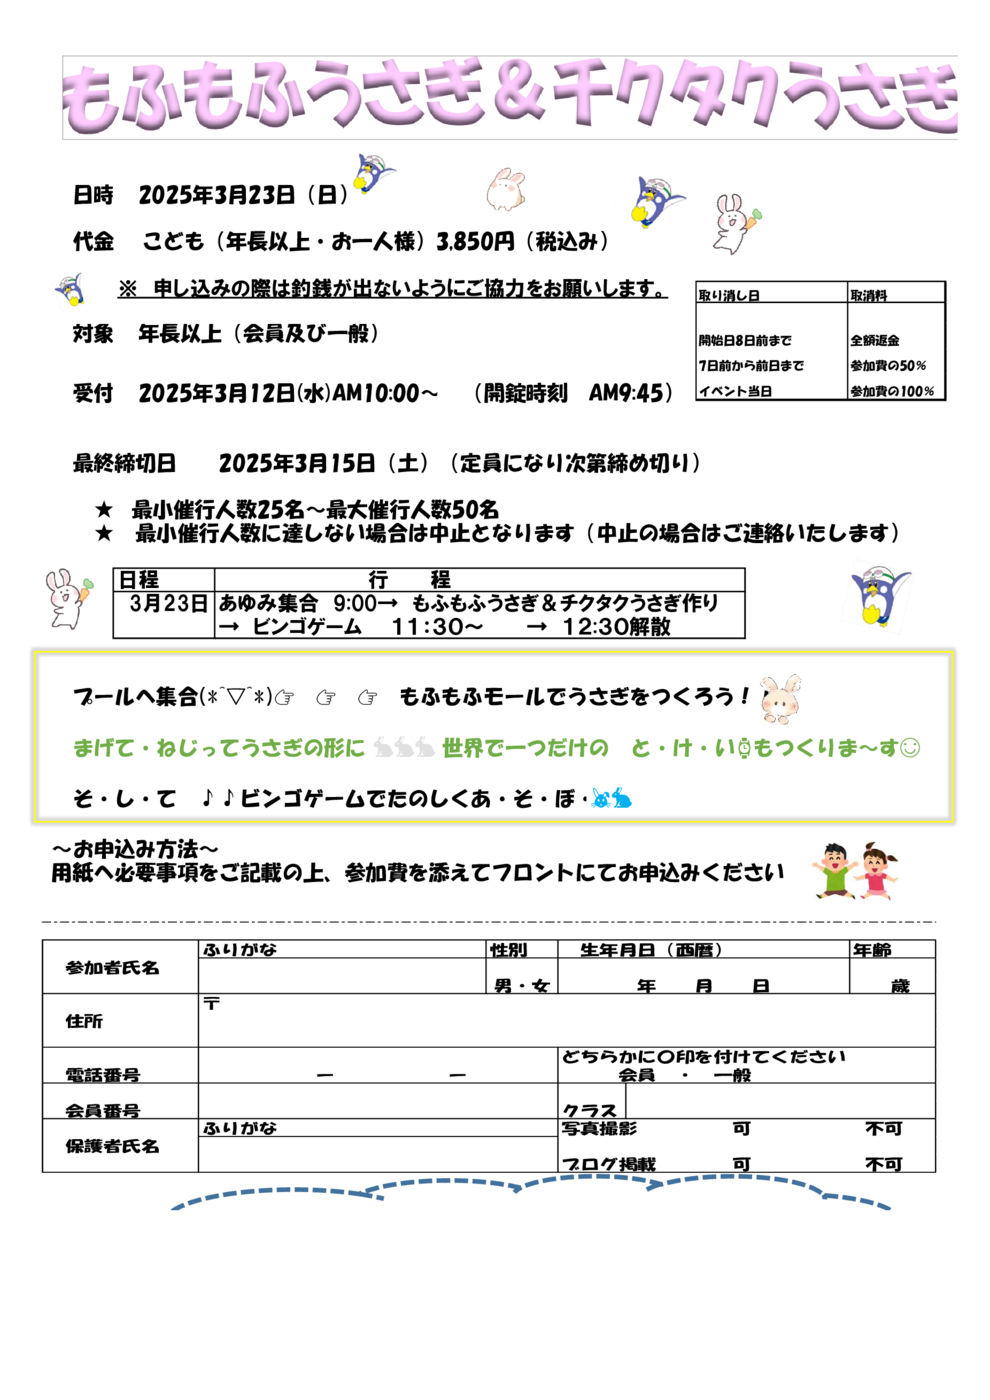 もふもふうさぎ＆チクタクうさぎ
日時　2025年3月23日（日）
代金　こども（年長以上・お一人様）3.850円（税込み）
※　申し込みの際は釣銭が出ないようにご協力をお願いします。
取り消し日　取消料
開始日8日前まで　全額返金
7日前から前日まで　参加費の50%
イベント当日　参加費の100%
対象　年長以上（会員及び一般）
受付　2025年3月12日(水)AM10:00～　（開錠時刻　AM9:45）
最終締切日　2025年3月15日（土）（定員になり次第締め切り）
★　最小催行人数25名～最大催行人数50名
★　最小催行人数に達しない場合は中止となります（中止の場合はご連絡いたします）
日程　行　程
3月23日　あゆみ集合　9:00→　もふもふうさぎ＆チクタクうさぎ作り
→　ビンゴゲーム　11:30～　→　12:30解散
プールへ集合(*^▽^*)☞　☞　☞　もふもふモールでうさぎをつくろう！
まげて・ねじってうさぎの形に🐇🐇🐇世界で一つだけの　と・け・い⌚もつくりま～す☺
そ・し・て　♪♪ビンゴゲームでたのしくあ・そ・ぼ・🐰🐇
～お申込み方法～
用紙へ必要事項をご記載の上、参加費を添えてフロントにてお申込みください
参加者氏名　ふりがな　性別　生年月日（西暦）　年齢
男・女　年　月　日　歳
住所　〒
電話番号　ー　ー　どちらかに〇印を付けてください
会員　・　一般
会員番号　クラス
保護者氏名　ふりがな　写真撮影　可　不可
ブログ掲載　可　不可